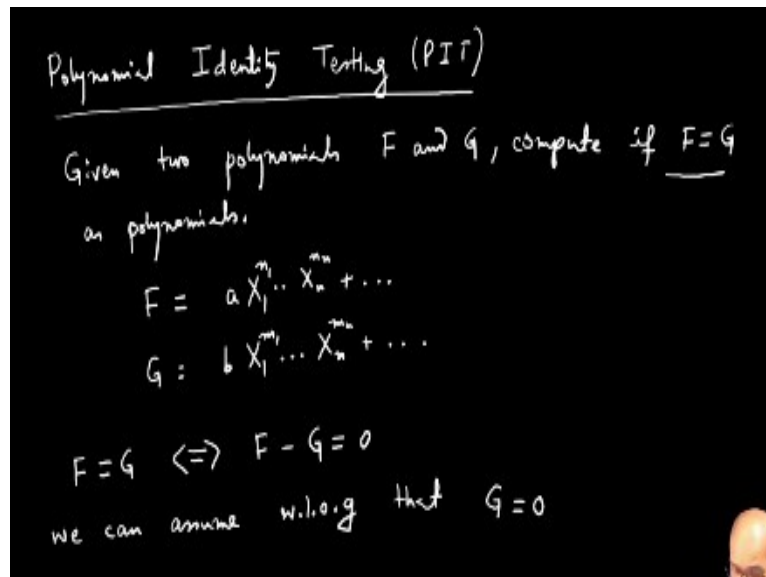 Polynomial Identity Testing (PIT)
Given two polynomials F and G, compute if F=G
as polynomials.
F = a X₁^{m₁}.. X_n^{m_n} + ...
G = b X₁^{m₁}... X_n^{m_n} + ....
F = G <=> F - G = 0
we can assume w.l.o.g that G = 0